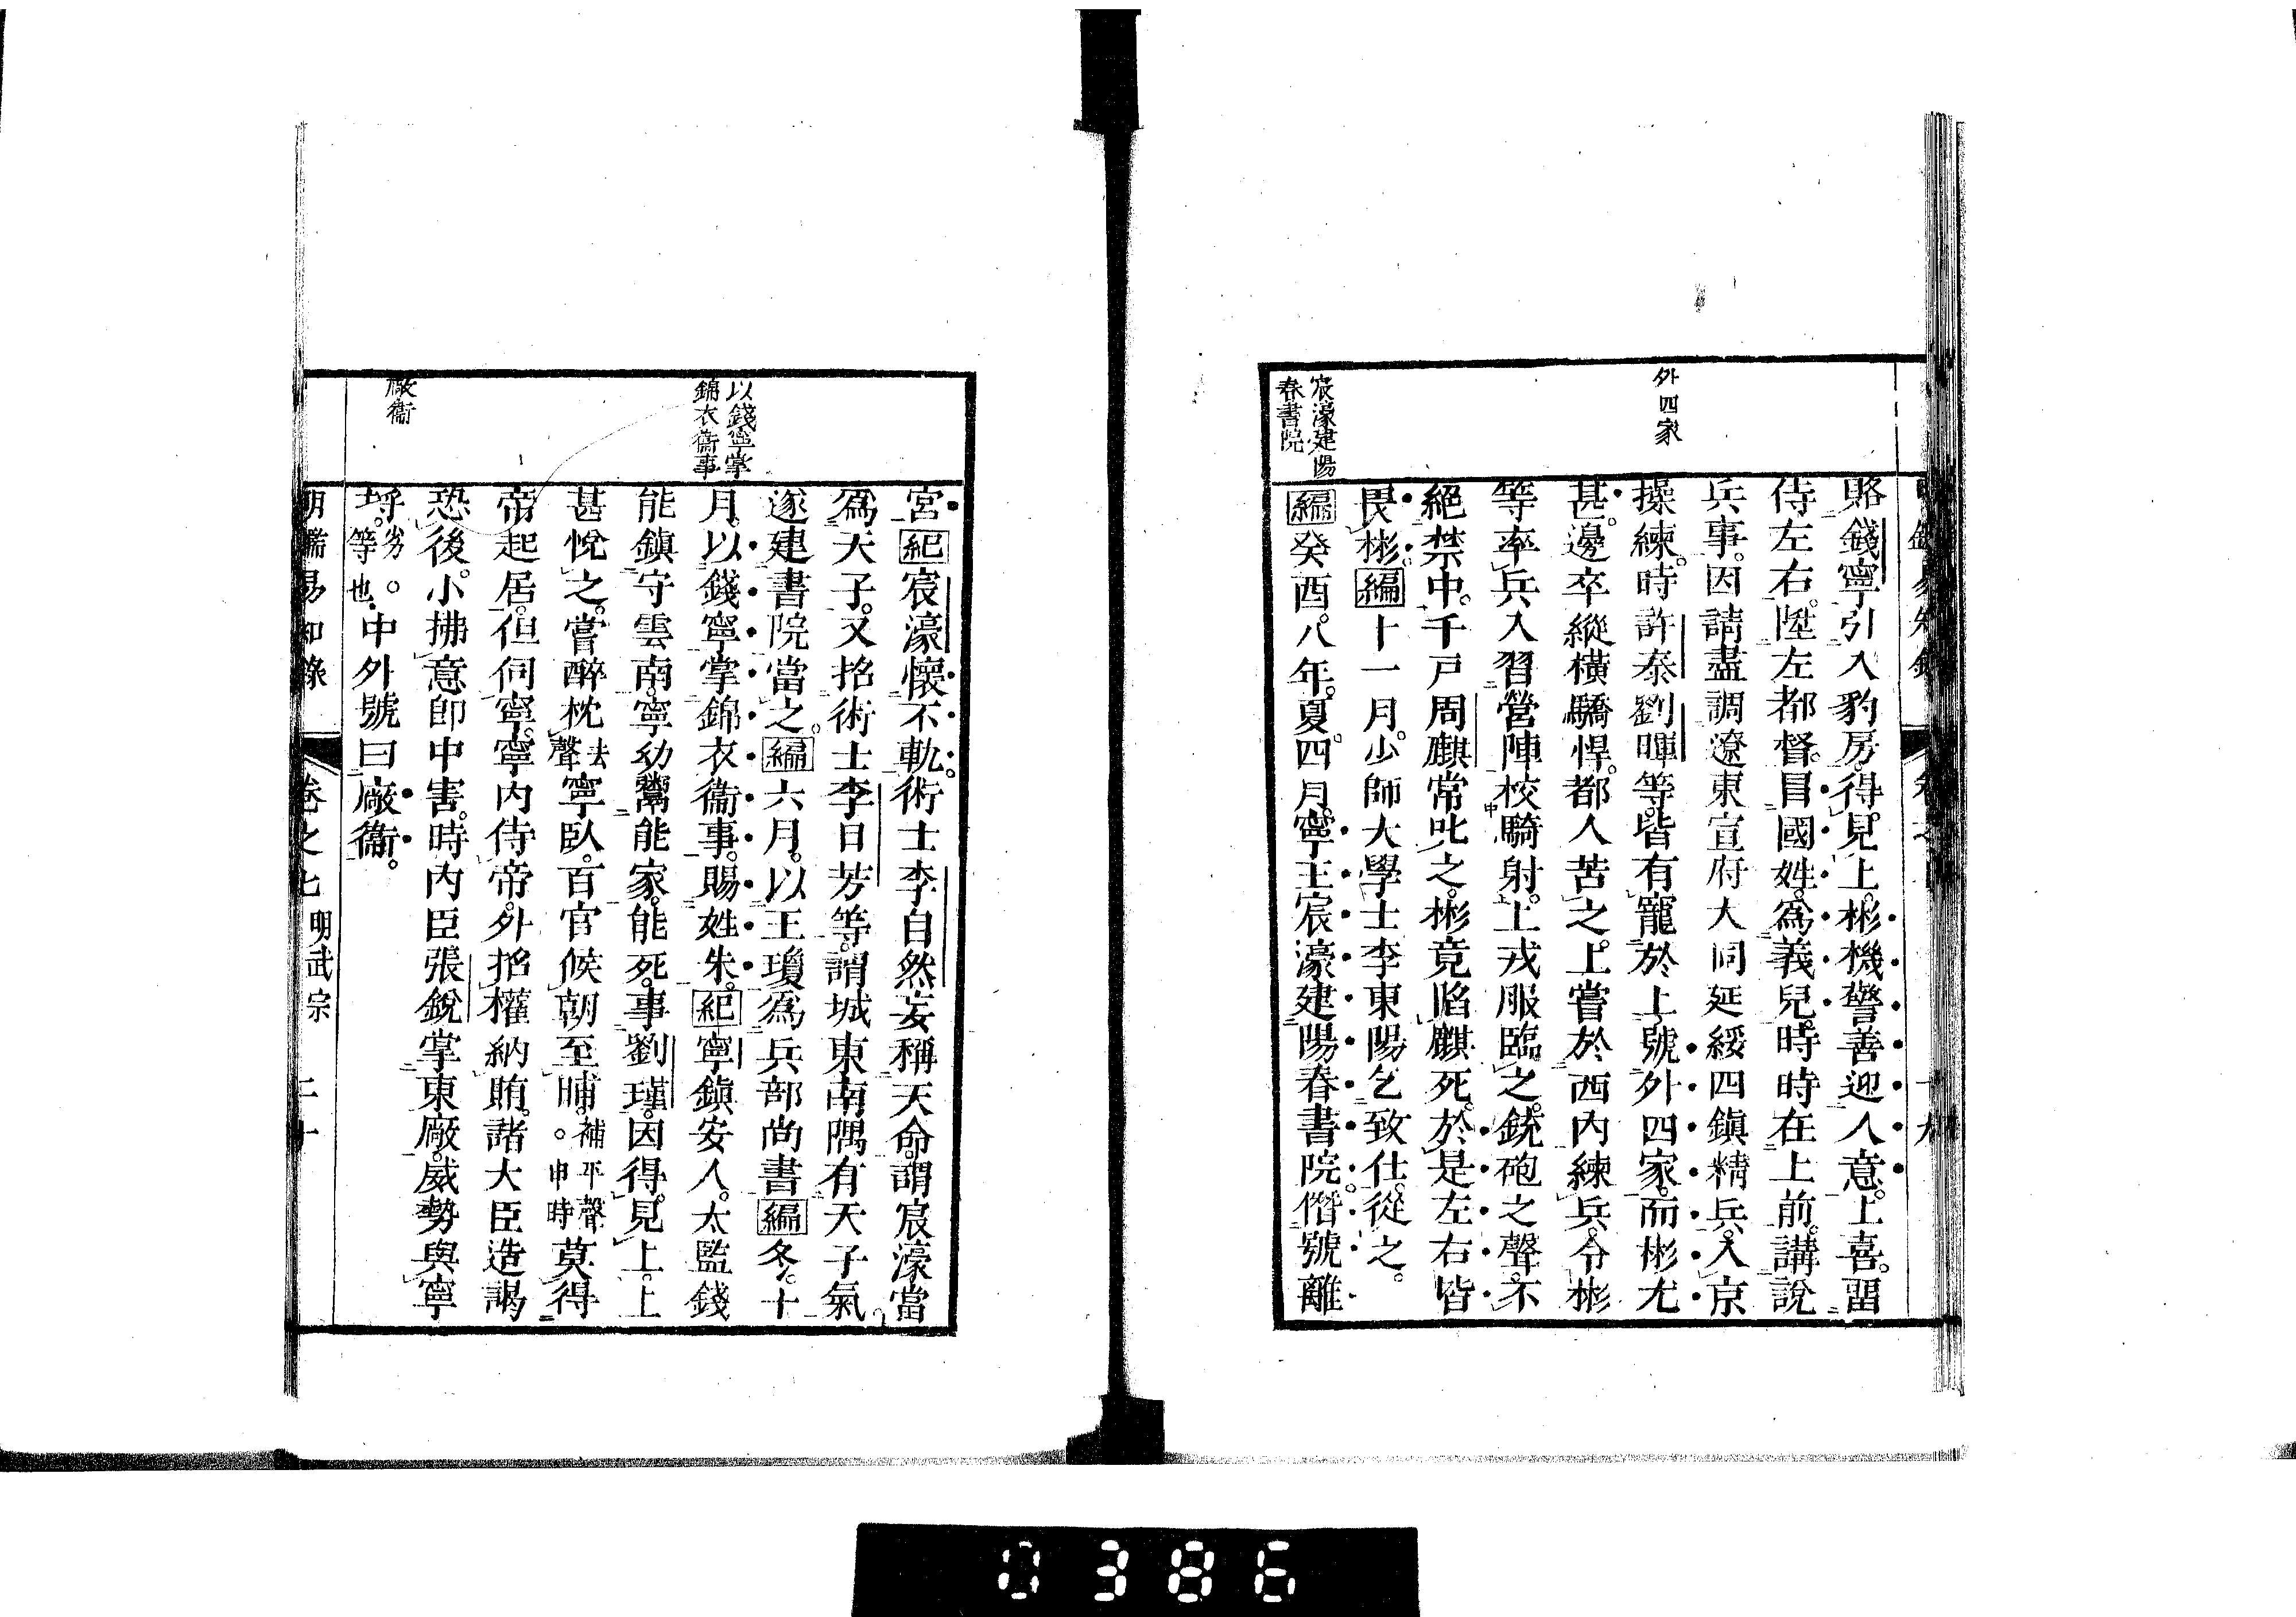 外四家
宸濠建陽
春書院
賂錢寧引入豹房。得見上。彬機警善迎人意。上喜。留
侍左右。陞左都督。冒國姓。爲義兒。時時在上前。講說
兵事。因請盡調遼東宣府大同延綏四鎮精兵。入京
操練。時許泰劉暉等。皆有寵於上。號外四家。而彬尤
甚。邊卒縱橫驕悍。都人苦之。上嘗於西內練兵。令彬
等率兵入習營陣校騎射。上戎服臨之。銃砲之聲。不
絕禁中。千戶周麒常叱之。彬竟陷麒死。於是左右皆
畏彬。編十一月。少師大學士李東陽乞致仕。從之。
編癸酉。八年。夏。四月。寧王宸濠建陽春書院。僭號離
以錢寧掌
錦衣衞事
廠衞
宮紀宸濠懷不軌。術士李自然妄稱天命。謂宸濠當
爲天子。又招術士李日芳等。謂城東南隅有天子氣
遂建書院當之。編六月。以王瓊爲兵部尚書編冬。十
月。以錢寧掌錦衣衞事。賜姓朱。紀寧鎮安人。太監錢
能鎮守雲南。寧幼鬻能家。能死。事劉瑾。因得見上。上
甚悅之。嘗醉枕去聲寧臥。百官候朝至晡。補平聲。申時莫得
帝起居。但伺寧。寧內侍帝。外招權納賄。諸大臣造謁
恐後。小拂意卽中害。時內臣張銳掌東廠。威勢與寧
埒。劣。等也。中外號曰廠衞。
明鑑易知錄 卷之七 明武宗 二十